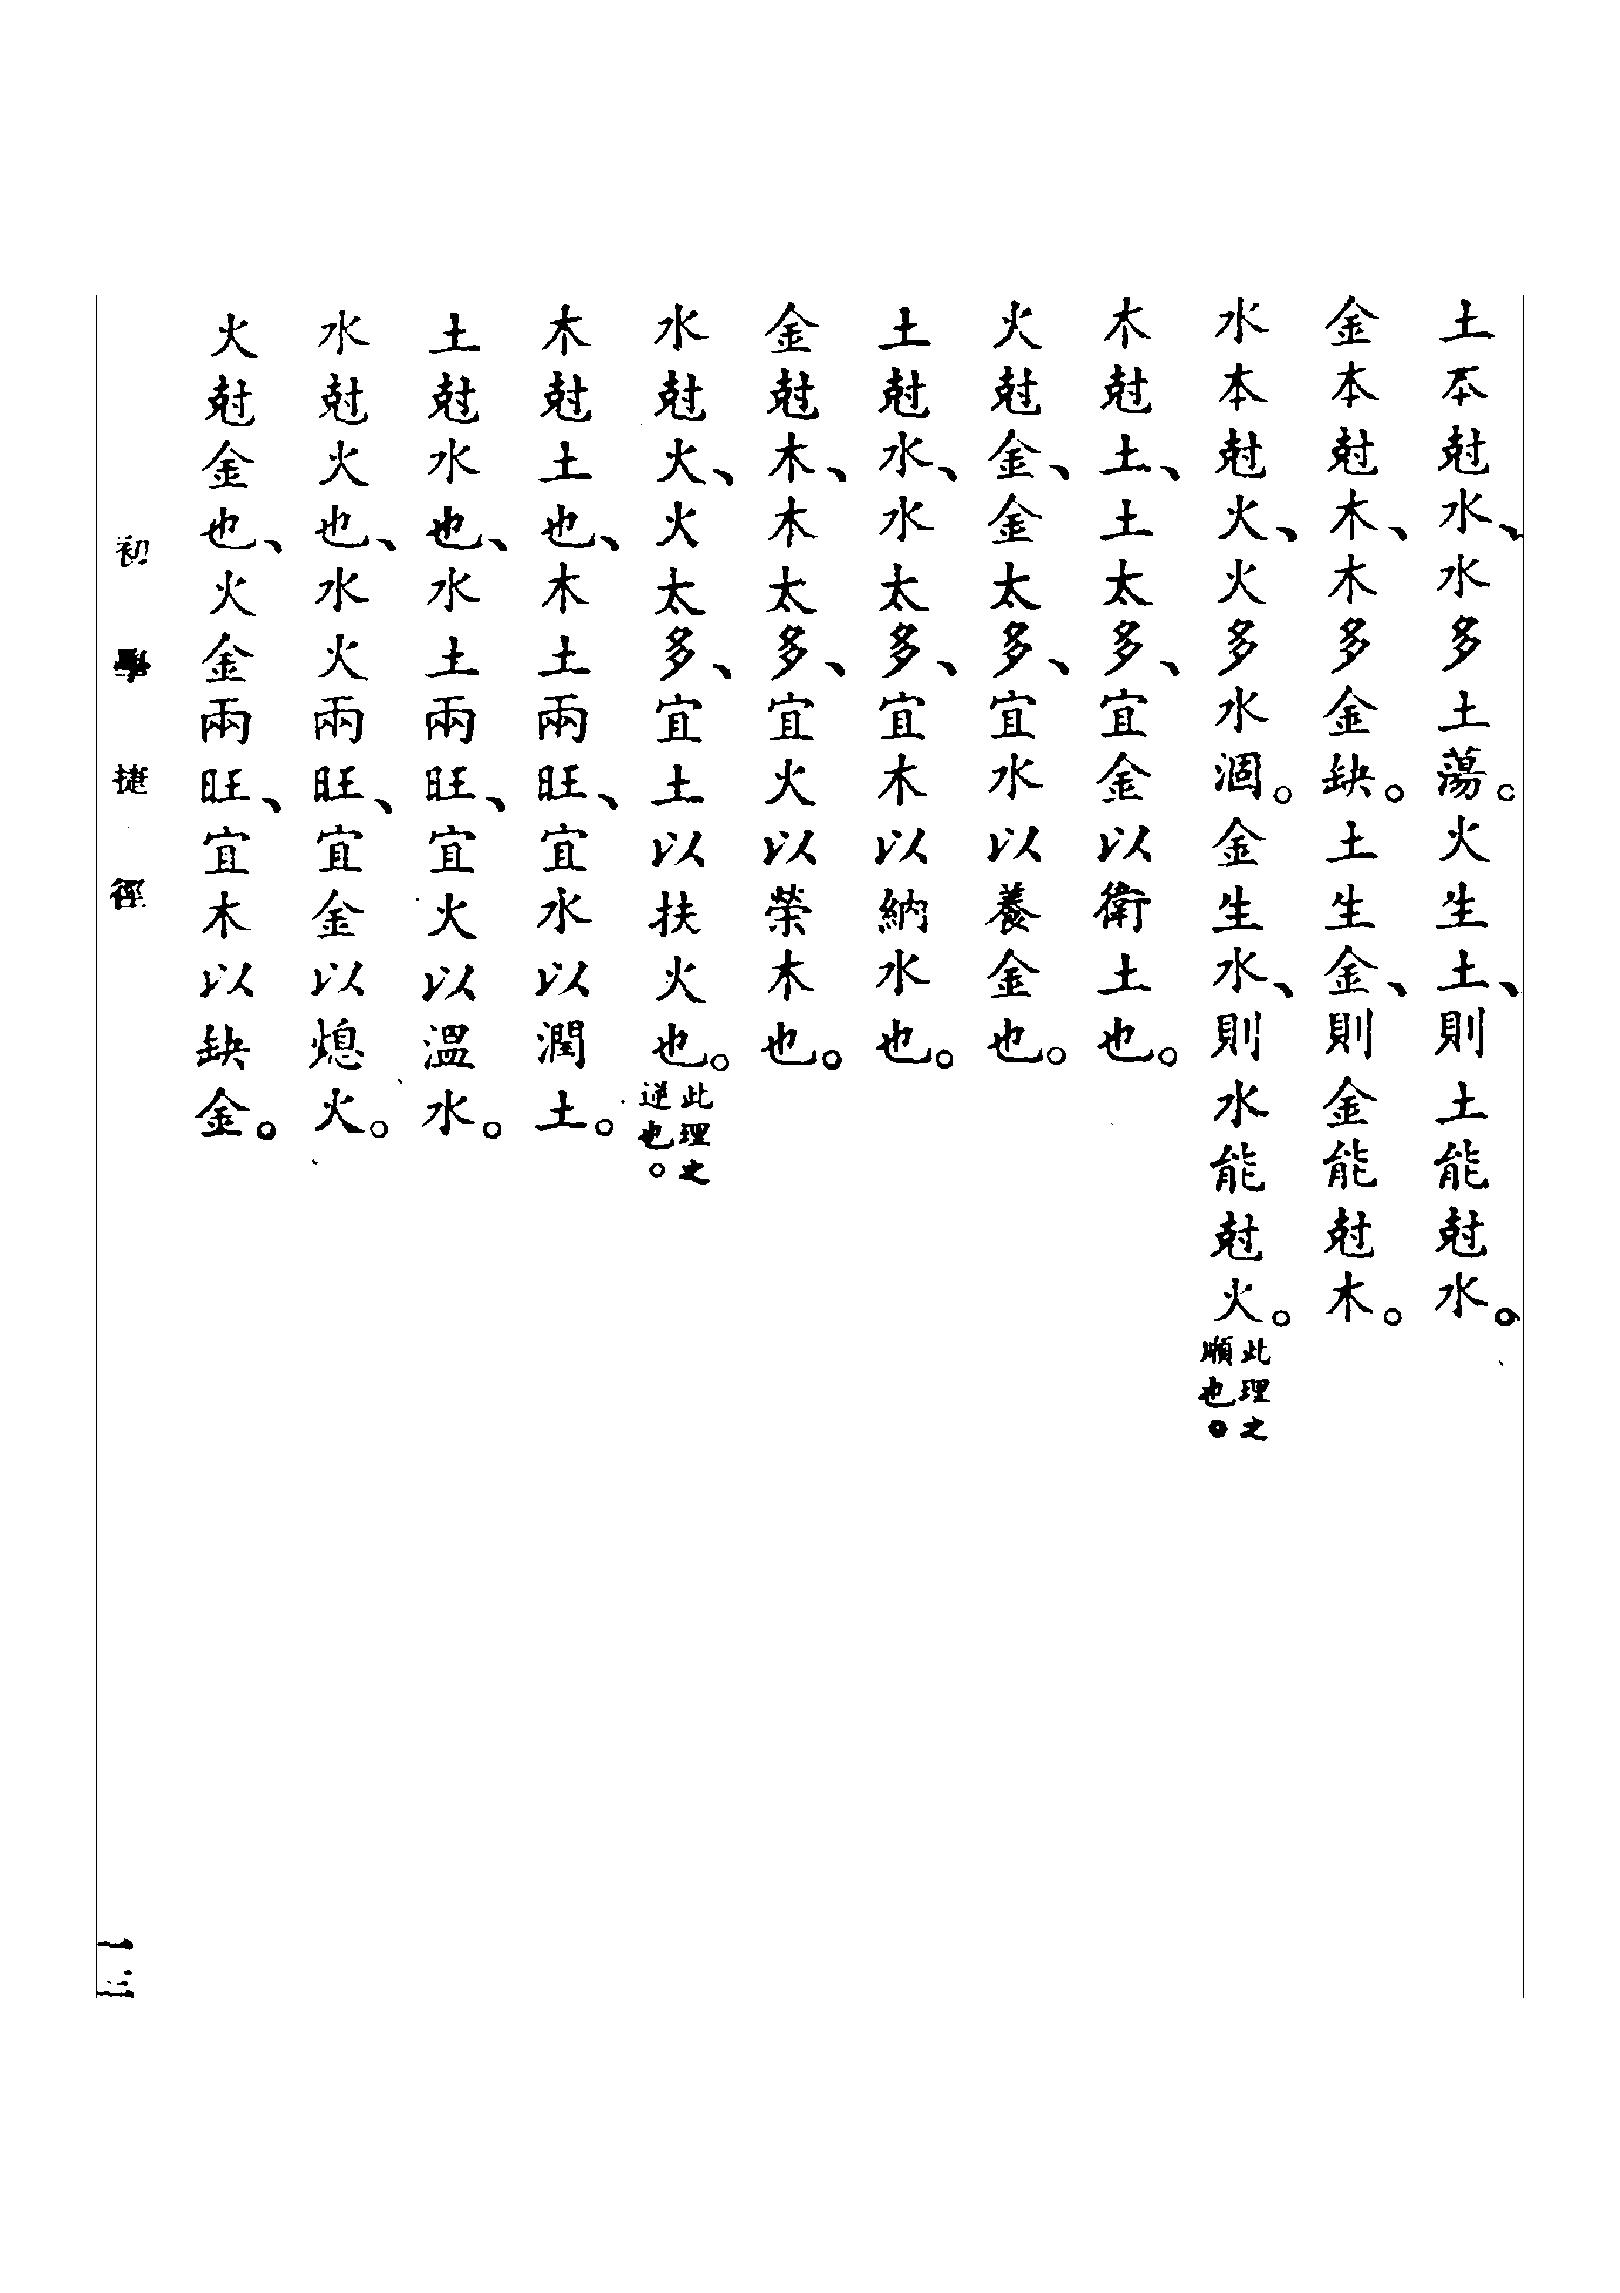 土本尅水、水多土蕩。火生土、則土能尅水。
金本尅木、木多金缺。土生金、則金能尅木。
水本尅火、火多水涸。金生水、則水能尅火。此理之順也。
木尅土、土太多、宜金以衛土也。
火尅金、金太多、宜水以養金也。
土尅水、水太多、宜木以納水也。
金尅木、木太多、宜火以榮木也。
水尅火、火太多、宜土以扶火也。此理之逆也。
木尅土也、木土兩旺、宜水以潤土。
土尅水也、水土兩旺、宜火以溫水。
水尅火也、水火兩旺、宜金以熄火。
火尅金也、火金兩旺、宜木以缺金。
初學捷徑
一三